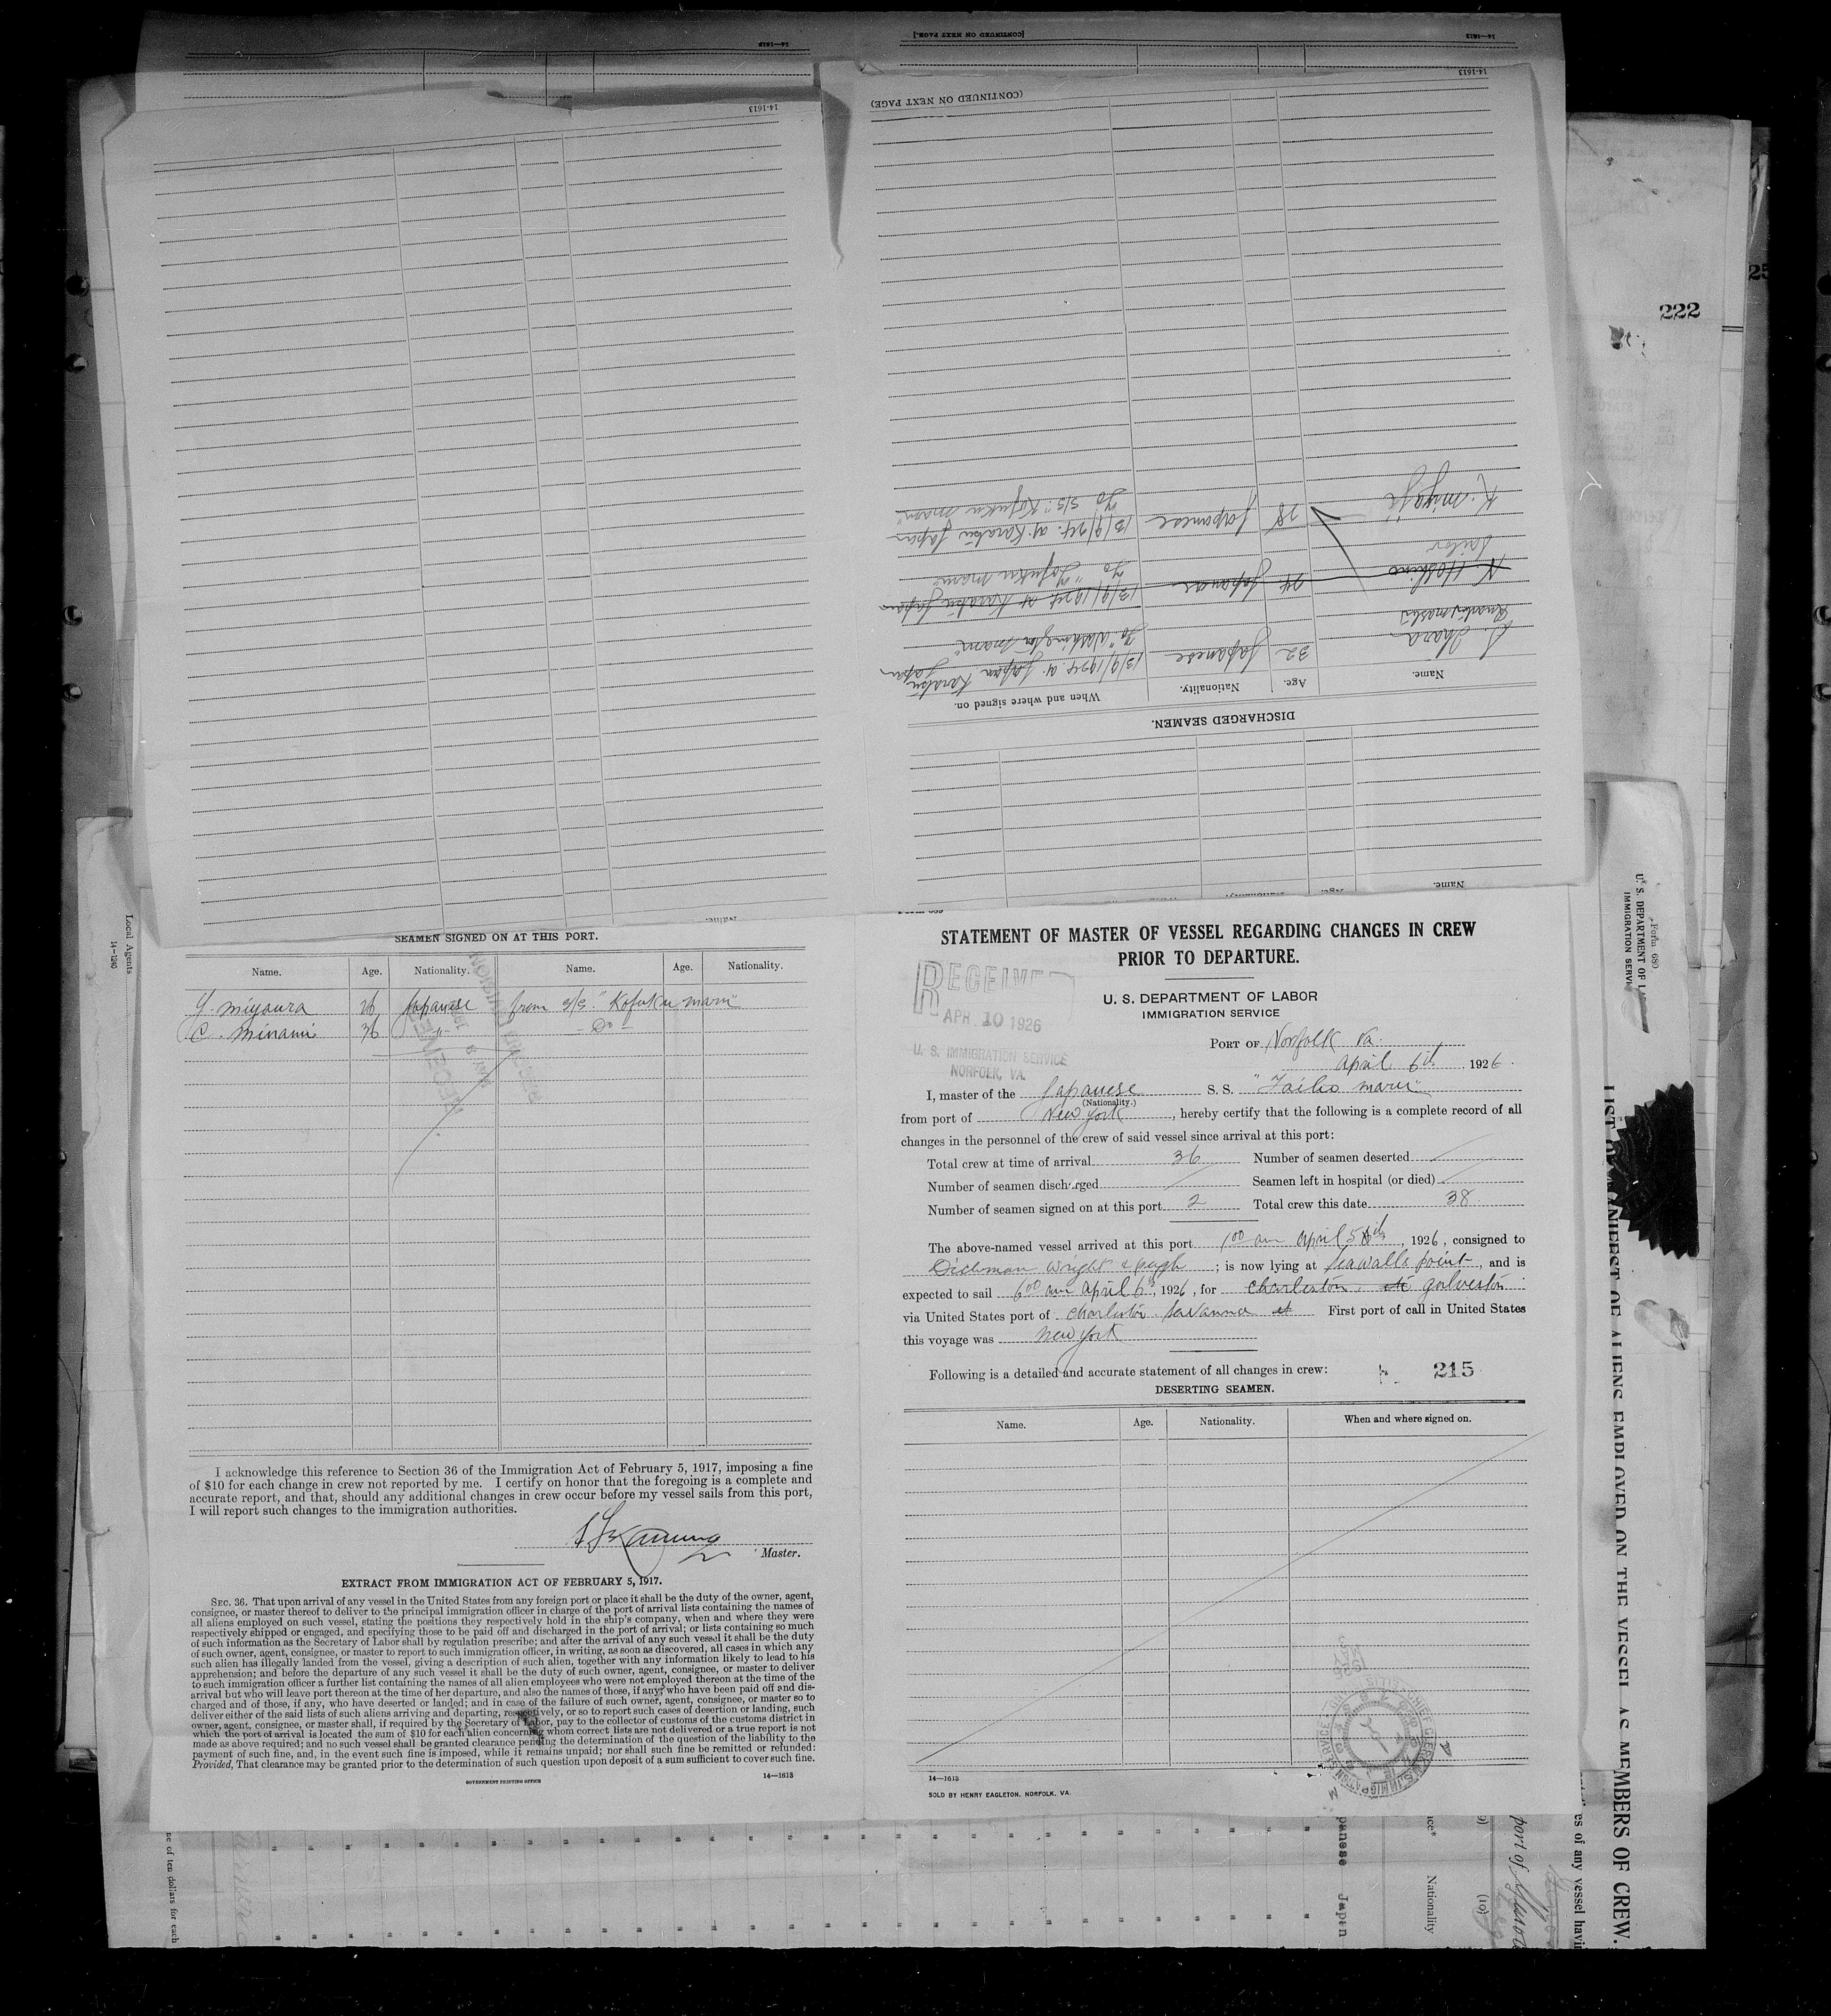 [CONTINUED ON NEXT PAGE.]
14—1613
14—1613
14-1613
(CONTINUED ON NEXT PAGE)
14-1613
222
DISCHARGED SEAMEN.
Name. Age. Nationality. When and where signed on.
S. Ihara 32 Japanese 13/9/1924 at Japan Karatsu Japan
Quartermaster To "Washington maru"
N. Hoshino 24 Japanese 13/9/1924 at Karatsu Japan
Sailor To "Kofuku maru"
K. Miyaji 28 Japanese 13/9/24. at Karatsu Japan
To S/S "Kofuku maru"
Name.
Name.
SEAMEN SIGNED ON AT THIS PORT.
Name. Age. Nationality. Name. Age. Nationality.
Y. Miyaura 26 Japanese from s/s. "Kofuku maru"
C. Minami 36 -"- - Do -
I acknowledge this reference to Section 36 of the Immigration Act of February 5, 1917, imposing a fine
of $10 for each change in crew not reported by me. I certify on honor that the foregoing is a complete and
accurate report, and that, should any additional changes in crew occur before my vessel sails from this port,
I will report such changes to the immigration authorities.
Master.
EXTRACT FROM IMMIGRATION ACT OF FEBRUARY 5, 1917.
SEC. 36. That upon arrival of any vessel in the United States from any foreign port or place it shall be the duty of the owner, agent,
consignee, or master thereof to deliver to the principal immigration officer in charge of the port of arrival lists containing the names of
all aliens employed on such vessel, stating the positions they respectively hold in the ship's company, when and where they were
respectively shipped or engaged, and specifying those to be paid off and discharged in the port of arrival; or lists containing so much
of such information as the Secretary of Labor shall by regulation prescribe; and after the arrival of any such vessel it shall be the duty
of such owner, agent, consignee, or master to report to such immigration officer, in writing, as soon as discovered, all cases in which any
such alien has illegally landed from the vessel, giving a description of such alien, together with any information likely to lead to his
apprehension; and before the departure of any such vessel it shall be the duty of such owner, agent, consignee, or master to deliver
to such immigration officer a further list containing the names of all alien employees who were not employed thereon at the time of the
arrival but who will leave port thereon at the time of her departure, and also the names of those, if any, who have been paid off and dis-
charged and of those, if any, who have deserted or landed; and in case of the failure of such owner, agent, consignee, or master so to
deliver either of the said lists of such aliens arriving and departing, respectively, or so to report such cases of desertion or landing, such
owner, agent, consignee, or master shall, if required by the Secretary of Labor, pay to the collector of customs of the customs district in
which the port of arrival is located the sum of $10 for each alien concerning whom correct lists are not delivered or a true report is not
made as above required; and no such vessel shall be granted clearance pending the determination of the question of the liability to the
payment of such fine, and, in the event such fine is imposed, while it remains unpaid; nor shall such fine be remitted or refunded:
Provided, That clearance may be granted prior to the determination of such question upon deposit of a sum sufficient to cover such fine.
GOVERNMENT PRINTING OFFICE
14—1613
STATEMENT OF MASTER OF VESSEL REGARDING CHANGES IN CREW
PRIOR TO DEPARTURE.
RECEIVED
APR. 10 1926
U. S. IMMIGRATION SERVICE
NORFOLK, VA.
U. S. DEPARTMENT OF LABOR
IMMIGRATION SERVICE
PORT OF Norfolk Va.
April 6th, 1926.
I, master of the Japanese S. S. "Taiho maru"
(Nationality.)
from port of New York, hereby certify that the following is a complete record of all
changes in the personnel of the crew of said vessel since arrival at this port:
Total crew at time of arrival 36 Number of seamen deserted
Number of seamen discharged Seamen left in hospital (or died)
Number of seamen signed on at this port 2 Total crew this date 38
The above-named vessel arrived at this port 1 00 am April 5th, 1926, consigned to
Dichman Wright & Pugh; is now lying at Seawalls point, and is
expected to sail 6 00 am April 6th, 1926, for Charleston. galveston
via United States port of Charleston. Savanna First port of call in United States
this voyage was New York
Following is a detailed and accurate statement of all changes in crew:
215
DESERTING SEAMEN.
Name. Age. Nationality. When and where signed on.
14—1613
SOLD BY HENRY EAGLETON, NORFOLK, VA.
Local Agents
14—1240
Form 680
U. S. DEPARTMENT OF
IMMIGRATION SERVICE
LIST OR MANIFEST OF ALIENS EMPLOYED ON THE VESSEL AS MEMBERS OF CREW.
es of any vessel havi
port of
(10)
Nationality
Japan
ne of ten dollars for each